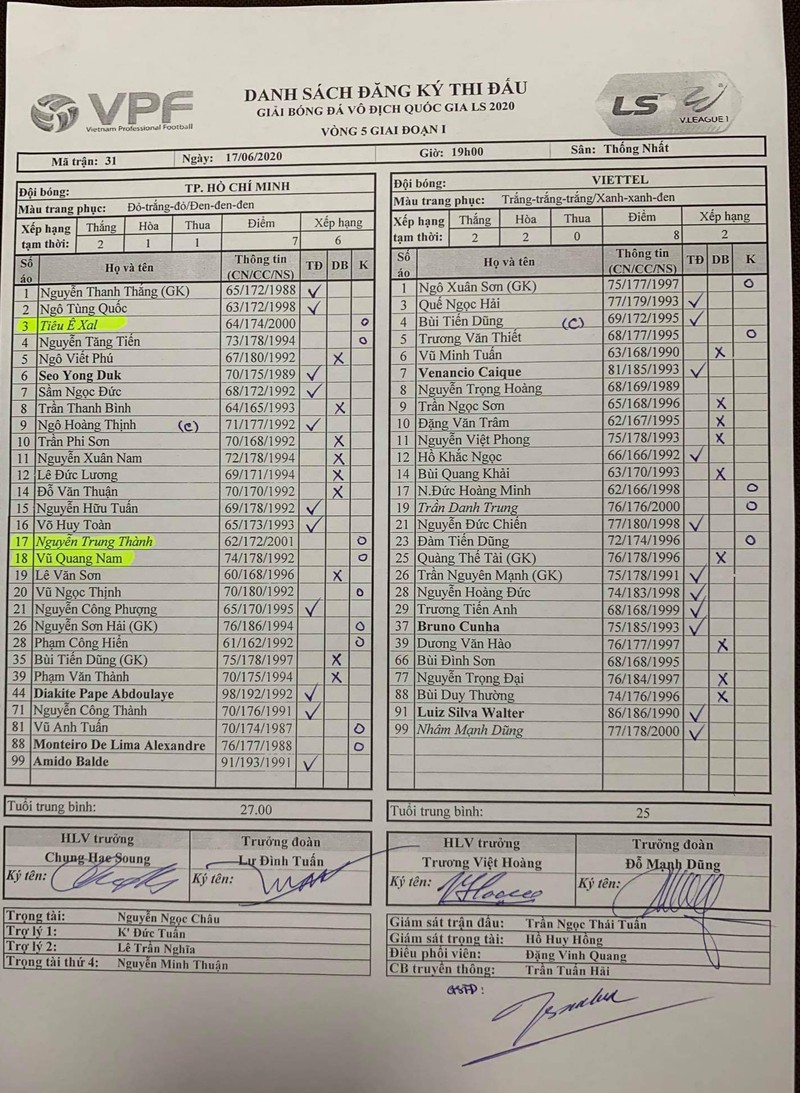 VPF
Vietnam Professional Football
DANH SÁCH ĐĂNG KÝ THI ĐẤU
GIẢI BÓNG ĐÁ VÔ ĐỊCH QUỐC GIA LS 2020
VÒNG 5 GIAI ĐOẠN I
LS V.LEAGUE 1
Mã trận: 31 Ngày: 17/06/2020 Giờ: 19h00 Sân: Thống Nhất
Đội bóng: TP. HỒ CHÍ MINH
Màu trang phục: Đỏ-trắng-đỏ/Đen-đen-đen
Xếp hạng tạm thời: Thắng Hòa Thua Điểm Xếp hạng
2 1 1 7 6
Số áo Họ và tên Thông tin (CN/CC/NS) TĐ DB K
1 Nguyễn Thanh Thắng (GK) 65/172/1988 ✓
2 Ngô Tùng Quốc 63/172/1998 ✓
3 Tiêu Ê Xal 64/174/2000 o
4 Nguyễn Tăng Tiến 73/178/1994 o
5 Ngô Viết Phú 67/180/1992 X
6 Seo Yong Duk 70/175/1989 ✓
7 Sầm Ngọc Đức 68/172/1992 ✓
8 Trần Thanh Bình 64/165/1993 X
9 Ngô Hoàng Thịnh (C) 71/177/1992 ✓
10 Trần Phi Sơn 70/168/1992 X
11 Nguyễn Xuân Nam 72/178/1994 X
12 Lê Đức Lương 69/171/1994 X
14 Đỗ Văn Thuận 70/170/1992 X
15 Nguyễn Hữu Tuấn 69/178/1992 ✓
16 Võ Huy Toàn 65/173/1993 ✓
17 Nguyễn Trung Thành 62/172/2001 o
18 Vũ Quang Nam 74/178/1992 o
19 Lê Văn Sơn 60/168/1996 X
20 Vũ Ngọc Thịnh 70/180/1992 o
21 Nguyễn Công Phượng 65/170/1995 ✓
26 Nguyễn Sơn Hải (GK) 76/186/1994 o
28 Phạm Công Hiển 61/162/1992 o
35 Bùi Tiến Dũng (GK) 75/178/1997 X
39 Phạm Văn Thành 70/175/1994 X
44 Diakite Pape Abdoulaye 98/192/1992 ✓
71 Nguyễn Công Thành 70/176/1991 ✓
81 Vũ Anh Tuấn 70/174/1987 o
88 Monteiro De Lima Alexandre 76/177/1988 o
99 Amido Balde 91/193/1991 ✓
Tuổi trung bình: 27.00
HLV trưởng Trưởng đoàn
Chung Hae Soung Lư Đình Tuấn
Ký tên: Ký tên:
Trọng tài: Nguyễn Ngọc Châu
Trợ lý 1: K' Đức Tuấn
Trợ lý 2: Lê Trần Nghĩa
Trọng tài thứ 4: Nguyễn Minh Thuận
Đội bóng: VIETTEL
Màu trang phục: Trắng-trắng-trắng/Xanh-xanh-đen
Xếp hạng tạm thời: Thắng Hòa Thua Điểm Xếp hạng
2 2 0 8 2
Số áo Họ và tên Thông tin (CN/CC/NS) TĐ DB K
1 Ngô Xuân Sơn (GK) 75/177/1997 o
3 Quế Ngọc Hải 77/179/1993 ✓
4 Bùi Tiến Dũng (C) 69/172/1995 ✓
5 Trương Văn Thiết 68/177/1995 o
6 Vũ Minh Tuấn 63/168/1990 X
7 Venancio Caique 81/185/1993 ✓
8 Nguyễn Trọng Hoàng 68/169/1989
9 Trần Ngọc Sơn 65/168/1996 X
10 Đặng Văn Trâm 62/167/1995 X
11 Nguyễn Việt Phong 75/178/1993 X
12 Hồ Khắc Ngọc 66/166/1992 ✓
14 Bùi Quang Khải 63/170/1993 X
17 N.Đức Hoàng Minh 62/166/1998 o
19 Trần Danh Trung 76/176/2000 o
21 Nguyễn Đức Chiến 77/180/1998 ✓
23 Đàm Tiến Dũng 72/174/1996 o
25 Quàng Thế Tài (GK) 76/178/1996 X
26 Trần Nguyên Mạnh (GK) 75/178/1991 ✓
28 Nguyễn Hoàng Đức 74/183/1998 ✓
29 Trương Tiến Anh 68/168/1999 ✓
37 Bruno Cunha 75/185/1993 ✓
39 Dương Văn Hào 76/177/1997 X
66 Bùi Đình Sơn 68/168/1995
77 Nguyễn Trọng Đại 76/184/1997 X
88 Bùi Duy Thường 74/176/1996 X
91 Luiz Silva Walter 86/186/1990 ✓
99 Nhâm Mạnh Dũng 77/178/2000 ✓
Tuổi trung bình: 25
HLV trưởng Trưởng đoàn
Trương Việt Hoàng Đỗ Mạnh Dũng
Ký tên: Ký tên:
Giám sát trận đấu: Trần Ngọc Thái Tuấn
Giám sát trọng tài: Hồ Huy Hồng
Điều phối viên: Đặng Vinh Quang
CB truyền thông: Trần Tuấn Hải